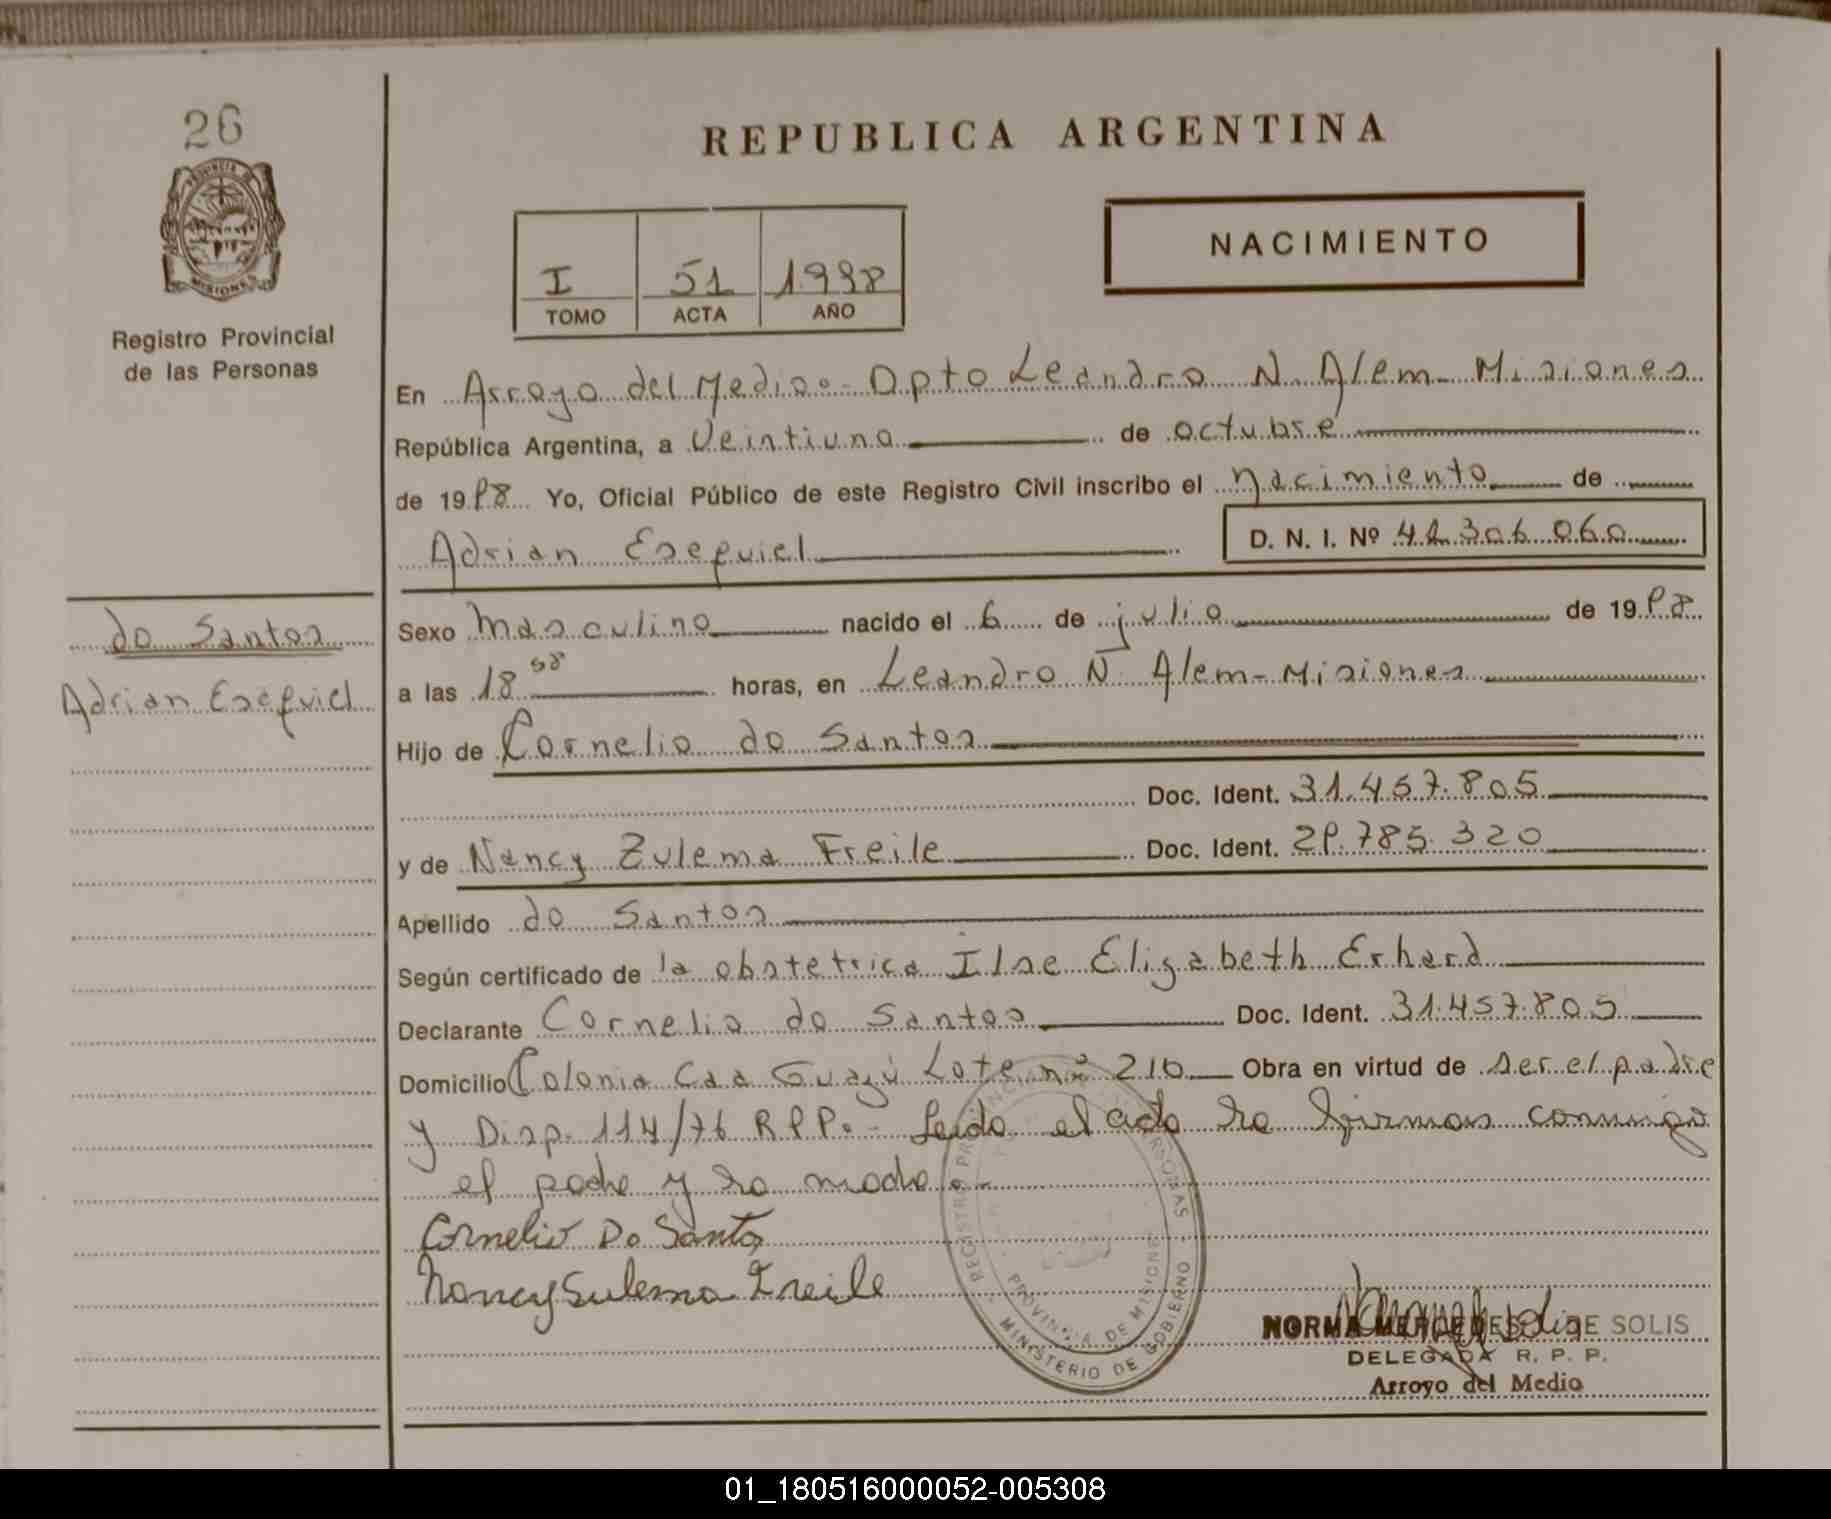 26
PROVINCIA DE
MISIONES
Registro Provincial
de las Personas
do Santos
Adrian Esequiel
REPUBLICA ARGENTINA
NACIMIENTO
I 51 1998
TOMO ACTA AÑO
En Arroyo del Medio.- Dpto Leandro N. Alem - Misiones
República Argentina, a Veintiuno de octubre
de 1998 Yo, Oficial Público de este Registro Civil inscribo el nacimiento de
Adrian Esequiel D. N. I. Nº 42.306.060
Sexo masculino nacido el 6 de julio de 1998
a las 18 58 horas, en Leandro N. Alem - Misiones
Hijo de Cornelio do Santos
Doc. Ident. 31.457.805
y de Nancy Zulema Freile Doc. Ident. 29.785.320
Apellido do Santos
Según certificado de la obstetrica Ilse Elizabeth Erhard
Declarante Cornelio do Santos Doc. Ident. 31.457.805
Domicilio Colonia Caa Guazú Lote nº 210 Obra en virtud de ser el padre
y Disp. 114/76 R.P.P.- Leida el acta la firman conmigo
el padre y la madre.-
Cornelio Do Santos
Nancy Sulema Freile
REGISTRO PROVINCIAL DE LAS PERSONAS
PROVINCIA DE MISIONES
MINISTERIO DE GOBIERNO
NORMA MERCEDES DE SOLIS
DELEGADA R. P. P.
Arroyo del Medio
01_180516000052-005308